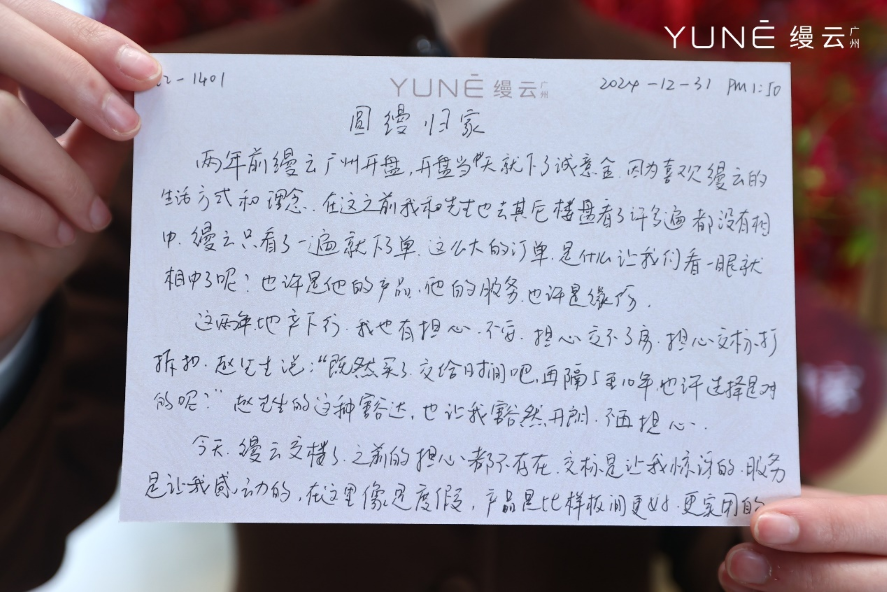 YUNÉ 缦云 广州
-1401 YUNÉ 缦云 广州 2024-12-31 PM1:50
圆缦归家
两年前缦云广州开盘,开盘当天就下了诚意金,因为喜欢缦云的
生活方式和理念.在这之前我和先生也去其它楼盘看了许多遍都没有相
中.缦云只看了一遍就下了单.这么大的订单.是什么让我们看一眼就
相中了呢?也许是他的产品.他的服务.也许是缘份.
这两年地产下行.我也有担心.不安.担心交不了房.担心交标打
折扣.赵先生说:“既然买了.交给时间吧,再隔5至10年也许选择是对
的呢?”赵先生的这种豁达,也让我豁然开朗.不再担心.
今天.缦云交楼了.之前的担心都不存在.交标是让我惊讶的.服务
是让我感动的,在这里像是度假,产品是比样板间更好.更实用的
家